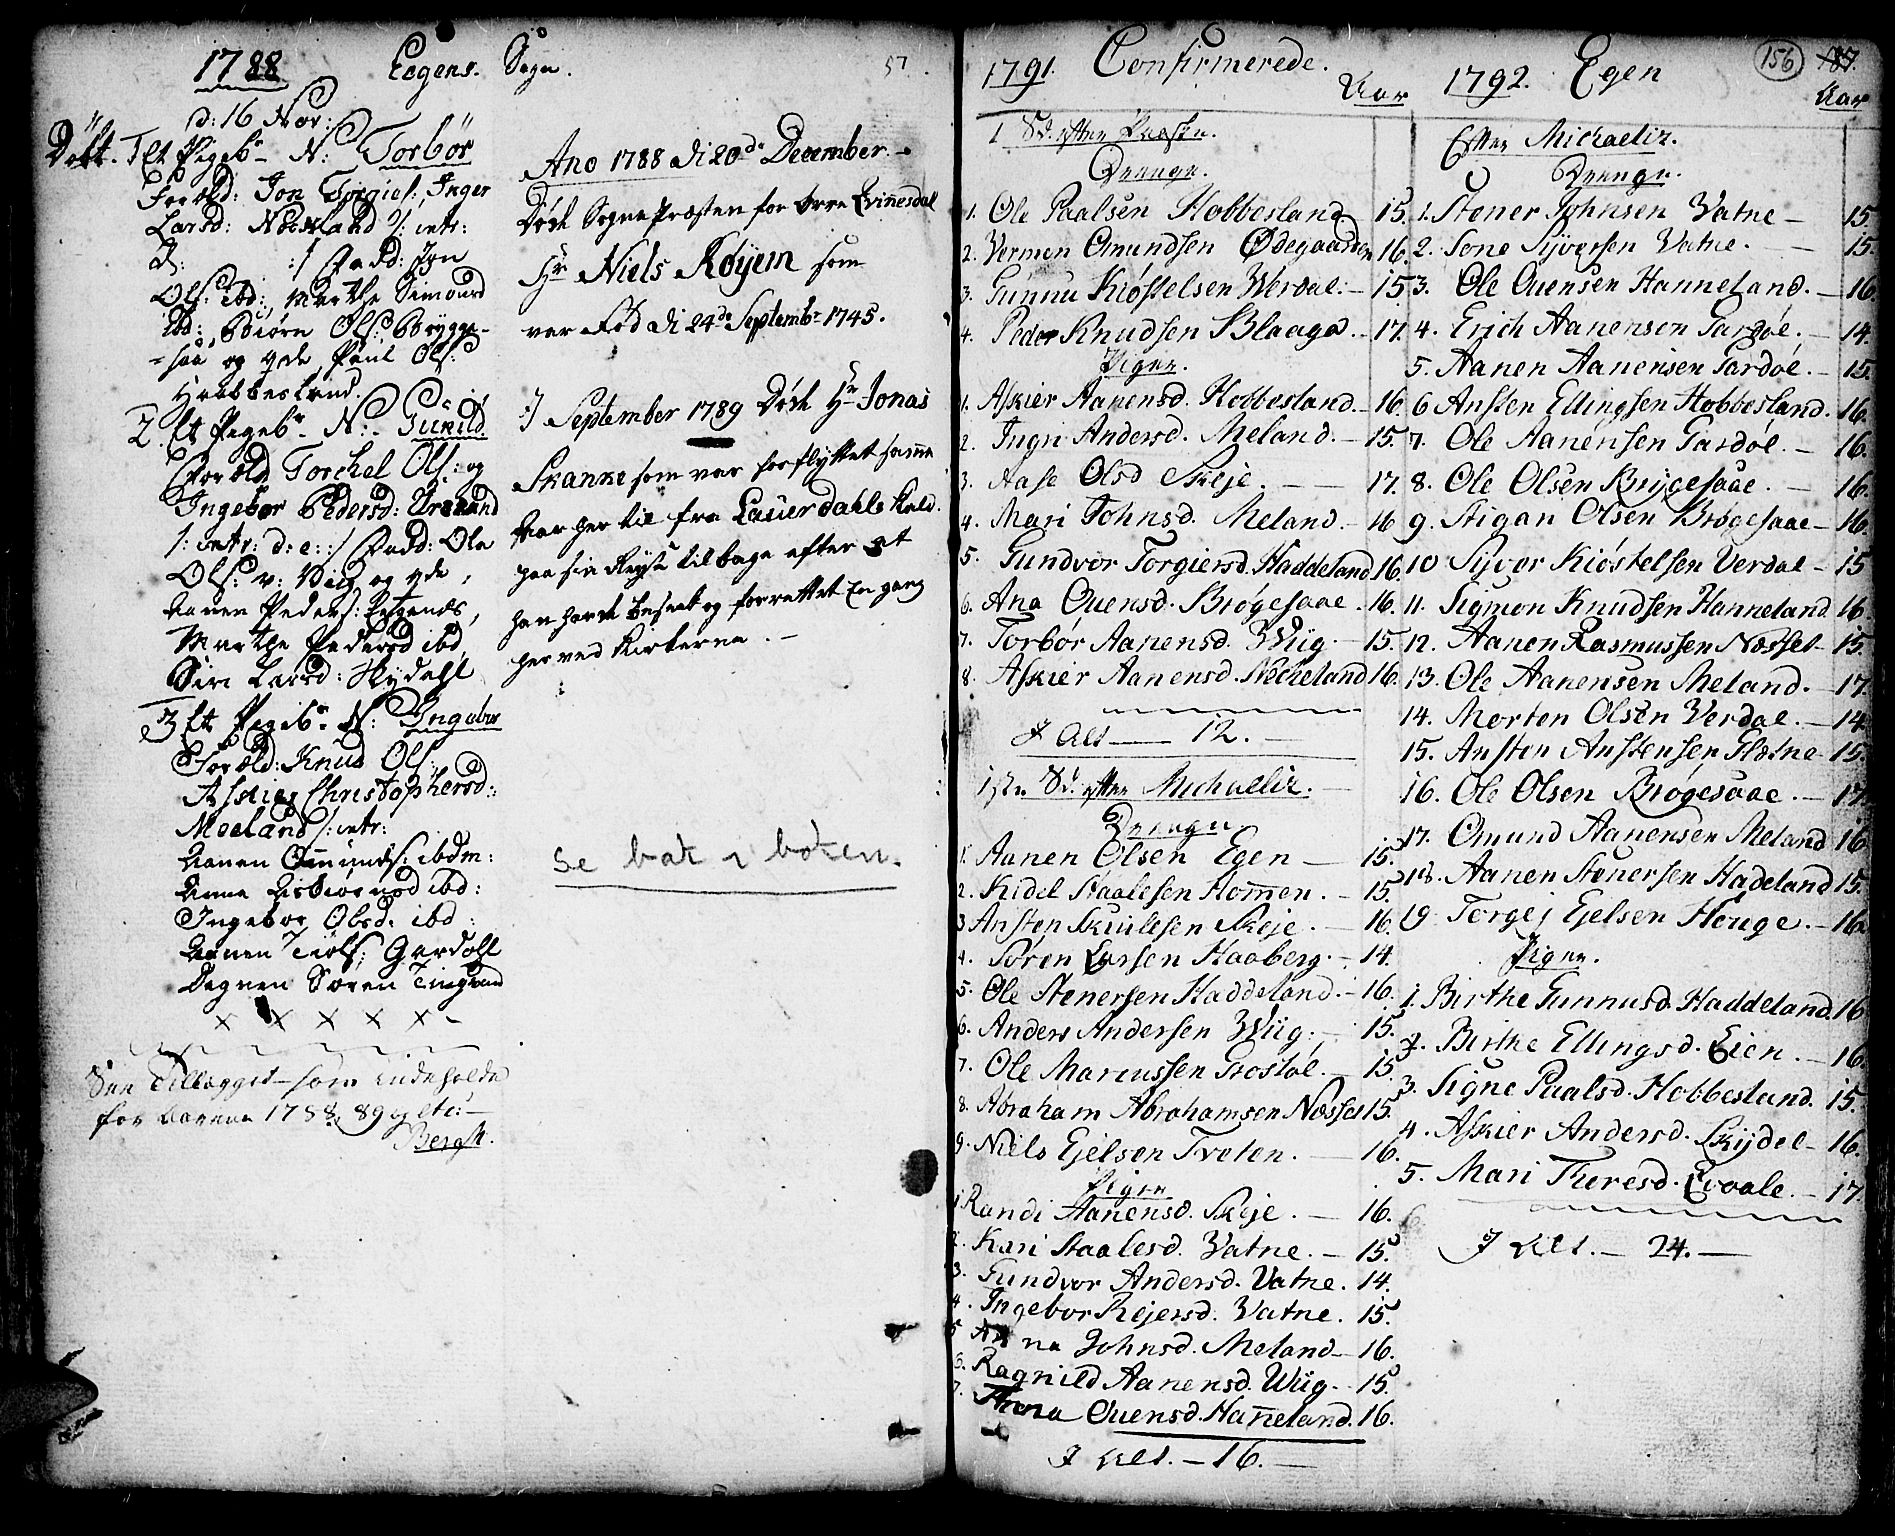 1788 Eegens. Sogn. 57.
d: 16 Nov:
Døbt. 1 Et Pigeb. N: Torbør
Foræld: Jon Torgiels:, Inger
Larsd: Nockland /: intr:
d: :/ Fadd: Jon
Ols: ibd:, Marthe Simonsd
ibd:, Biørn Ols: Brygge-
=saa og gde, Poul Ols:
Haabbesland.
2. Et Pigeb. N: Gunild.
Foræld. Torchel Ols: og
Ingebor Pedersd:
/: intr: d: e: :/ Fadd: Ole
Ols: v: Viig og gde,
Aanen Peders: Eegenes,
Marthe Pedersd ibd,
Siri Larsd: Skydell
3 Et Pigeb. N: Ingebor
Foræld: Knud Ols:
Askier Christophersd:
Meeland /: intr:
Aanen Omunds: ibdm:
Anna Asbiørnsd ibd:
Ingebor Olsd. ibd:
Aanen Tiøls: Gardøll
Degnen Søren Tingvand
x x x x x -
See Tillægget som indeholde
for Aarene 1788, 89 og etc: -
Bergh.
Ano 1788 di 20de December. -
Døde Sogne Præsten for Øvre Qvinesdal
Hr Niels Røyem som
var Fød di 24de Septembr 1745.
:/ September 1789 Døde Hr Jonas
Skanke som var forflyttet samme
Aar her til fra Lauerdahls Kald.
paa sin Reyse tilbage efter at
han havde besøgt og forrettet En gang
her ved Kirkerne. -
Se bak i boken.
1791. Confirmerede. Aar
1 Sd. efter Paaske.
Drenge.
1. Ole Paalsen Hobbesland 15.
2. Vermen Omundsen Ødegaarden 16.
3. Gunnu Kiøstelsen Werdal. - 15
4. Peder Knudsen Blaaga. - 17.
Piger.
1. Askier Aanensd. Hobbesland. - 16.
2. Ingri Andersd. Meland. - 15.
3. Aase Olsd Skeje. - - 17.
4. Mari Johnsd. Meland. - 16
5. Gundvor Torgiersd. Haddeland 16.
6. Ana Ouensd. Brøgesaae. - 16.
7. Torbør Aanensd. Wiig. - 15.
8. Askier Aanensd. Nockeland 16.
I Alt - 12. -
1ste Sd. efter Michaelis. -
Drenge.
1. Aanen Olsen Egen - 15.
2. Kidel Staalesen Hommen. - 15.
3 Ansten Skuulesen Skeje. - 16.
4. Søren Larsen Haaberg. - 14.
5. Ole Stenersen Haddeland. - 16.
6. Anders Andersen Wiig. - 15.
7. Ole Marcussen Grostøl. - 15
8. Abraham Abrahamsen Næsset 15.
9. Niels Ejelsen Tveten. - 16.
Piger
1. Randi Aanensd. Skeje. - 16.
2. Kari Staalesd. Vatne. - 15.
3. Gundvor Andersd. Vatne. 14.
4. Ingebor Rejersd. Vatne. 15.
5 Anna Johnsd. Meland - 16.
6. Ragnild Aanensd. Wiig. - 15.
7. Anna Ouensd. Hanneland. 16.
I Alt. - 16. -
1792. Egen 156 187.
Aar
Efter Michaelis.
Drenge.
1. Stener Johnsen Vatne - 15.
2. Tone Syversen Vatne. - 15.
3. Ole Ouensen Hanneland. - 16.
4. Erich Aanensen Gardøl. - 14.
5. Aanen Aanensen Gardøl. - 15.
6 Ansten Ellingsen Hobbesland. 16.
7. Ole Aanensen Gardøl. - 16.
8. Ole Olsen Brøgesaae. - 16.
9. Stigan Olsen Brøgesaae - 16.
10 Syver Kiøstelsen Verdal - 15
11. Sigmon Knudsen Hanneland. 16.
12. Aanen Rasmussen Næsset - 15.
13. Ole Aanensen Meland. - 17.
14. Morten Olsen Verdal. - 14.
15. Ansten Anstensen Flatne - 15.
16. Ole Olsen Brøgesaae. - 17.
17. Omund Aanensen Meland 16
18. Aanen Stenersen Hadeland 15.
19 Torgej Ejelsen Houge. - 16.
Piger.
1. Birthe Gunnusd. Haddeland. 16
2. Birthe Ellingsd. Lien. - 16.
3. Signe Paalsd. Hobbesland. 15.
4. Askier Andersd. Skijdel - 16.
5. Mari Theresd. Qvaale. - 17.
I Alt. - 24. -